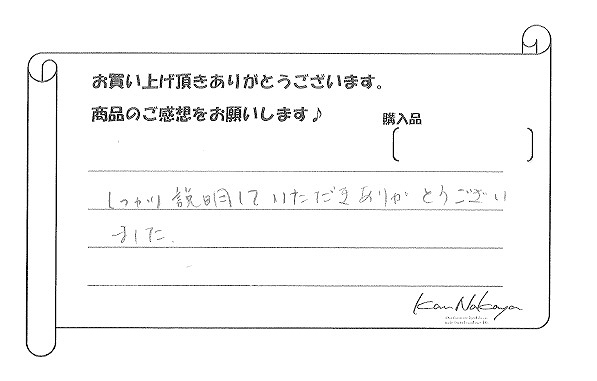 お買い上げ頂きありがとうございます。
商品のご感想をお願いします♪
購入品
しっかり説明していただきありがとうござい
ました.
Kan Nakaya